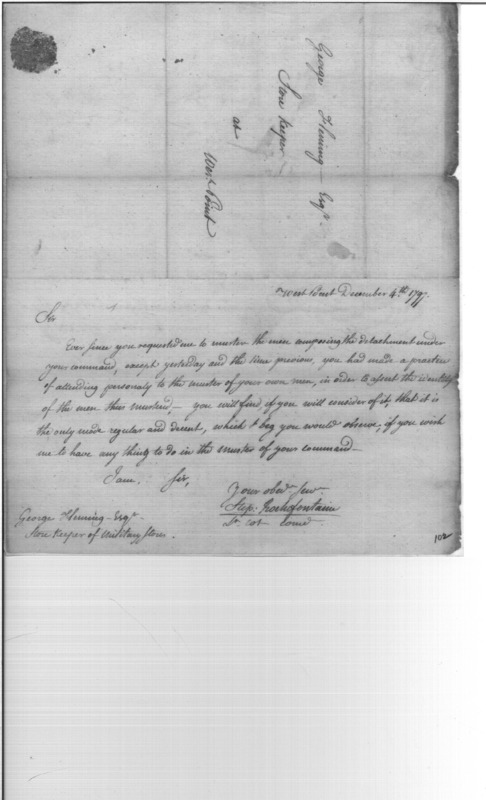 George Fleming Esqr.
Store Keeper
at
West Point
West Point December 4th. 1797.
Sir
Ever since you requested me to muster the men composing the detachment under
your command, except yesterday and the time previous, you had made a practice
of attending personaly to the muster of your own men, in order to assert the identity
of the men thus mustered — you will find if you will consider of it, that it is
the only mode regular and decent, which I beg you would observe, if you wish
me to have any thing to do in the muster of your command —
I am. Sir,
your obedt. Serv
Step: Rochefontaine
Lt. Col. Comd.
George Fleming — Esqr.
Store Keeper of Military Stores.
102